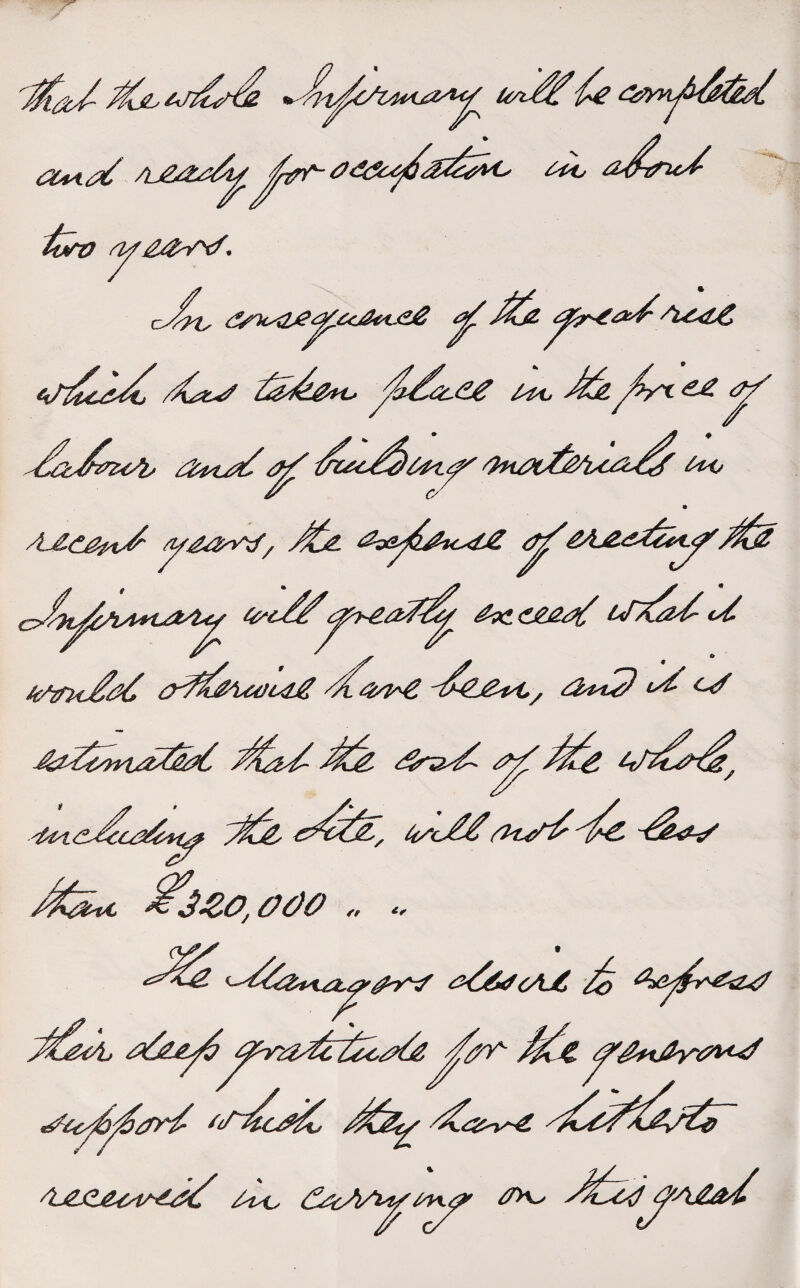 that the whole Infirmary will be completed
and ready for occupation in about
two years.
In consequence of the great rise
which has taken place in the price of
labour and of building materials in
recent years, the expense of erecting the
Infirmary will greatly exceed what it
would otherwise have been, and it is
estimated that the cost of the whole,
including the Site, will not be less
than £320,000 " "
The Managers desire to express
their deep gratitude for the generous
support which they have hitherto
received in carrying on this great